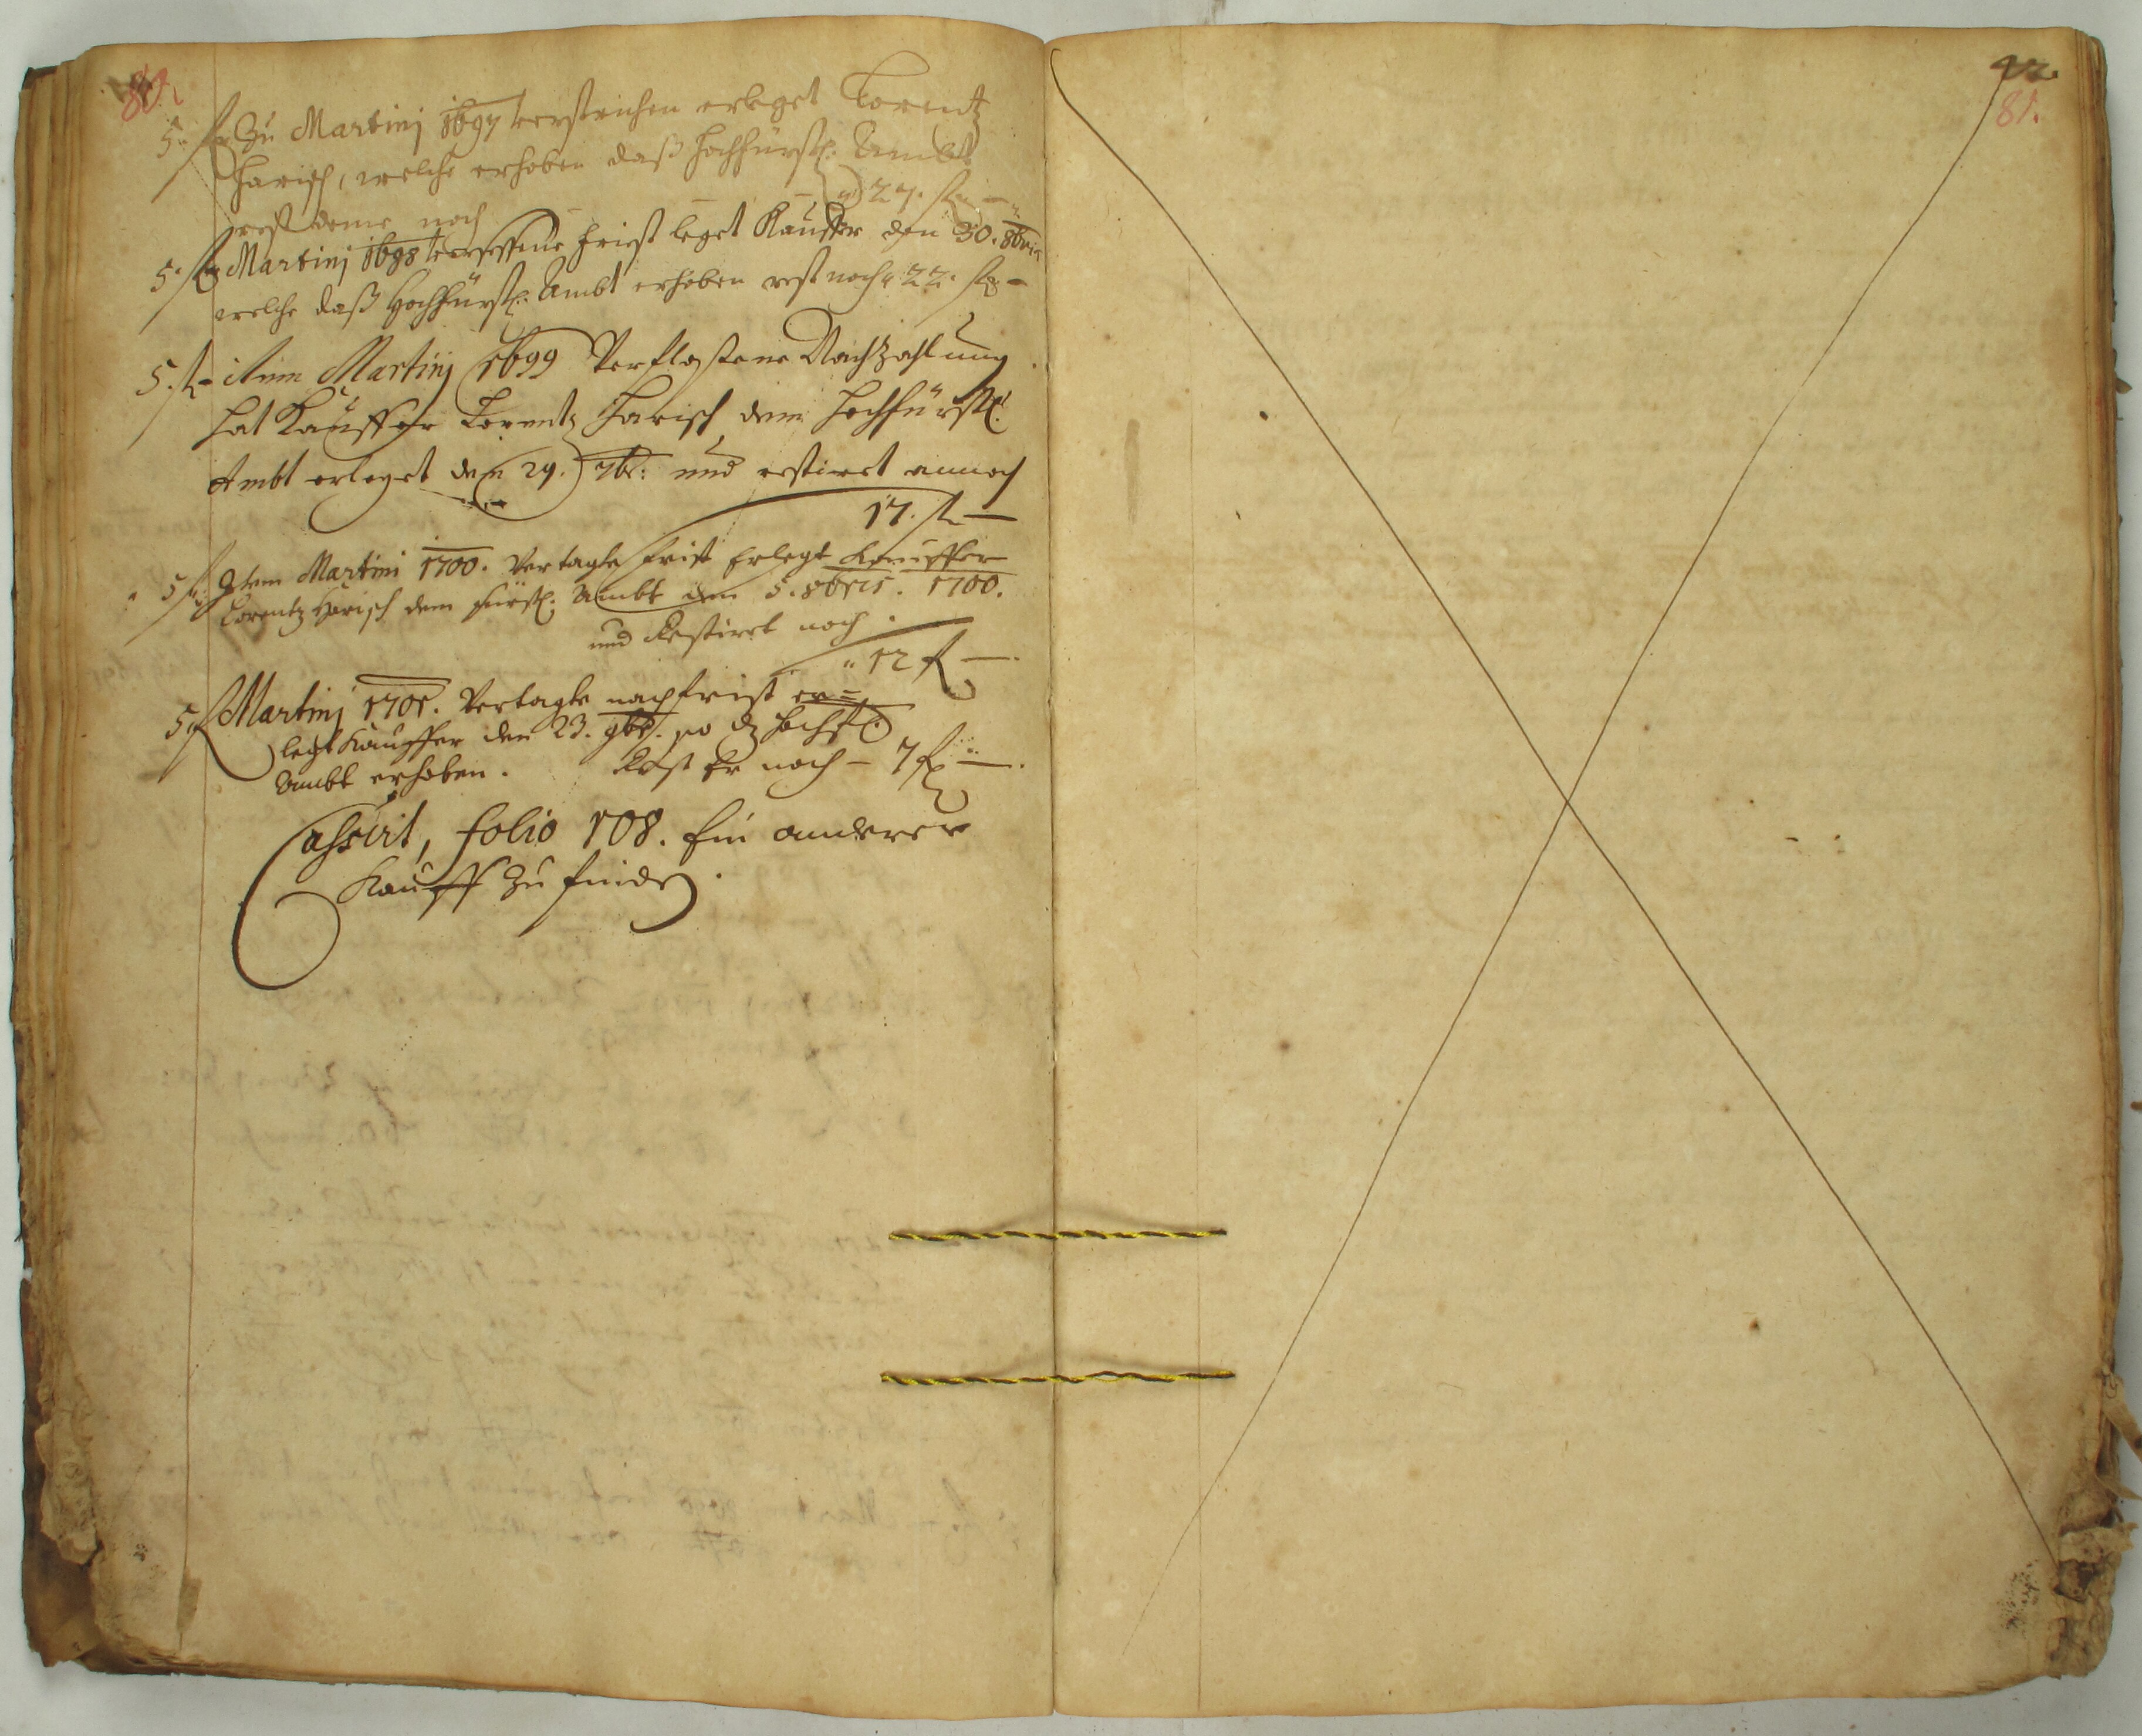 80.
5. f Zu Martinj 1697 verstrichen erleget Lorentz
Harisch, welche erhoben daß hochfürstl: Ambt
rest deme noch — — 27. f —
5. f Martinj 1698 versessene Friest leget Kauffer den 30. 8bris
welche daß Hochfürstl: Ambt erhoben rest noch 22. f —
5. f item Martinj 1699 Verflossene Nachzahlung
hat Kauffer Lorentz Harisch dem hochfürstl:
Ambt erleget den 29. 7br: und restiret annoch
17. f —
5 f Item Martini 1700. Vertagte frist Erlegt Kauffer
Lorentz Harisch dem fürstl: Ambt den 5. 8bris. 1700.
und Restiret noch.
12 f —.
5 f Martinj 1701. Vertagte nachfrist er=
legt Kauffer den 23. 9br. so dz hochfl:
Ambt erhoben. Rest Er noch — 7 f —.
Cassirt, folio 108. Ein anderer
Kauff zu finden.
42.
81.